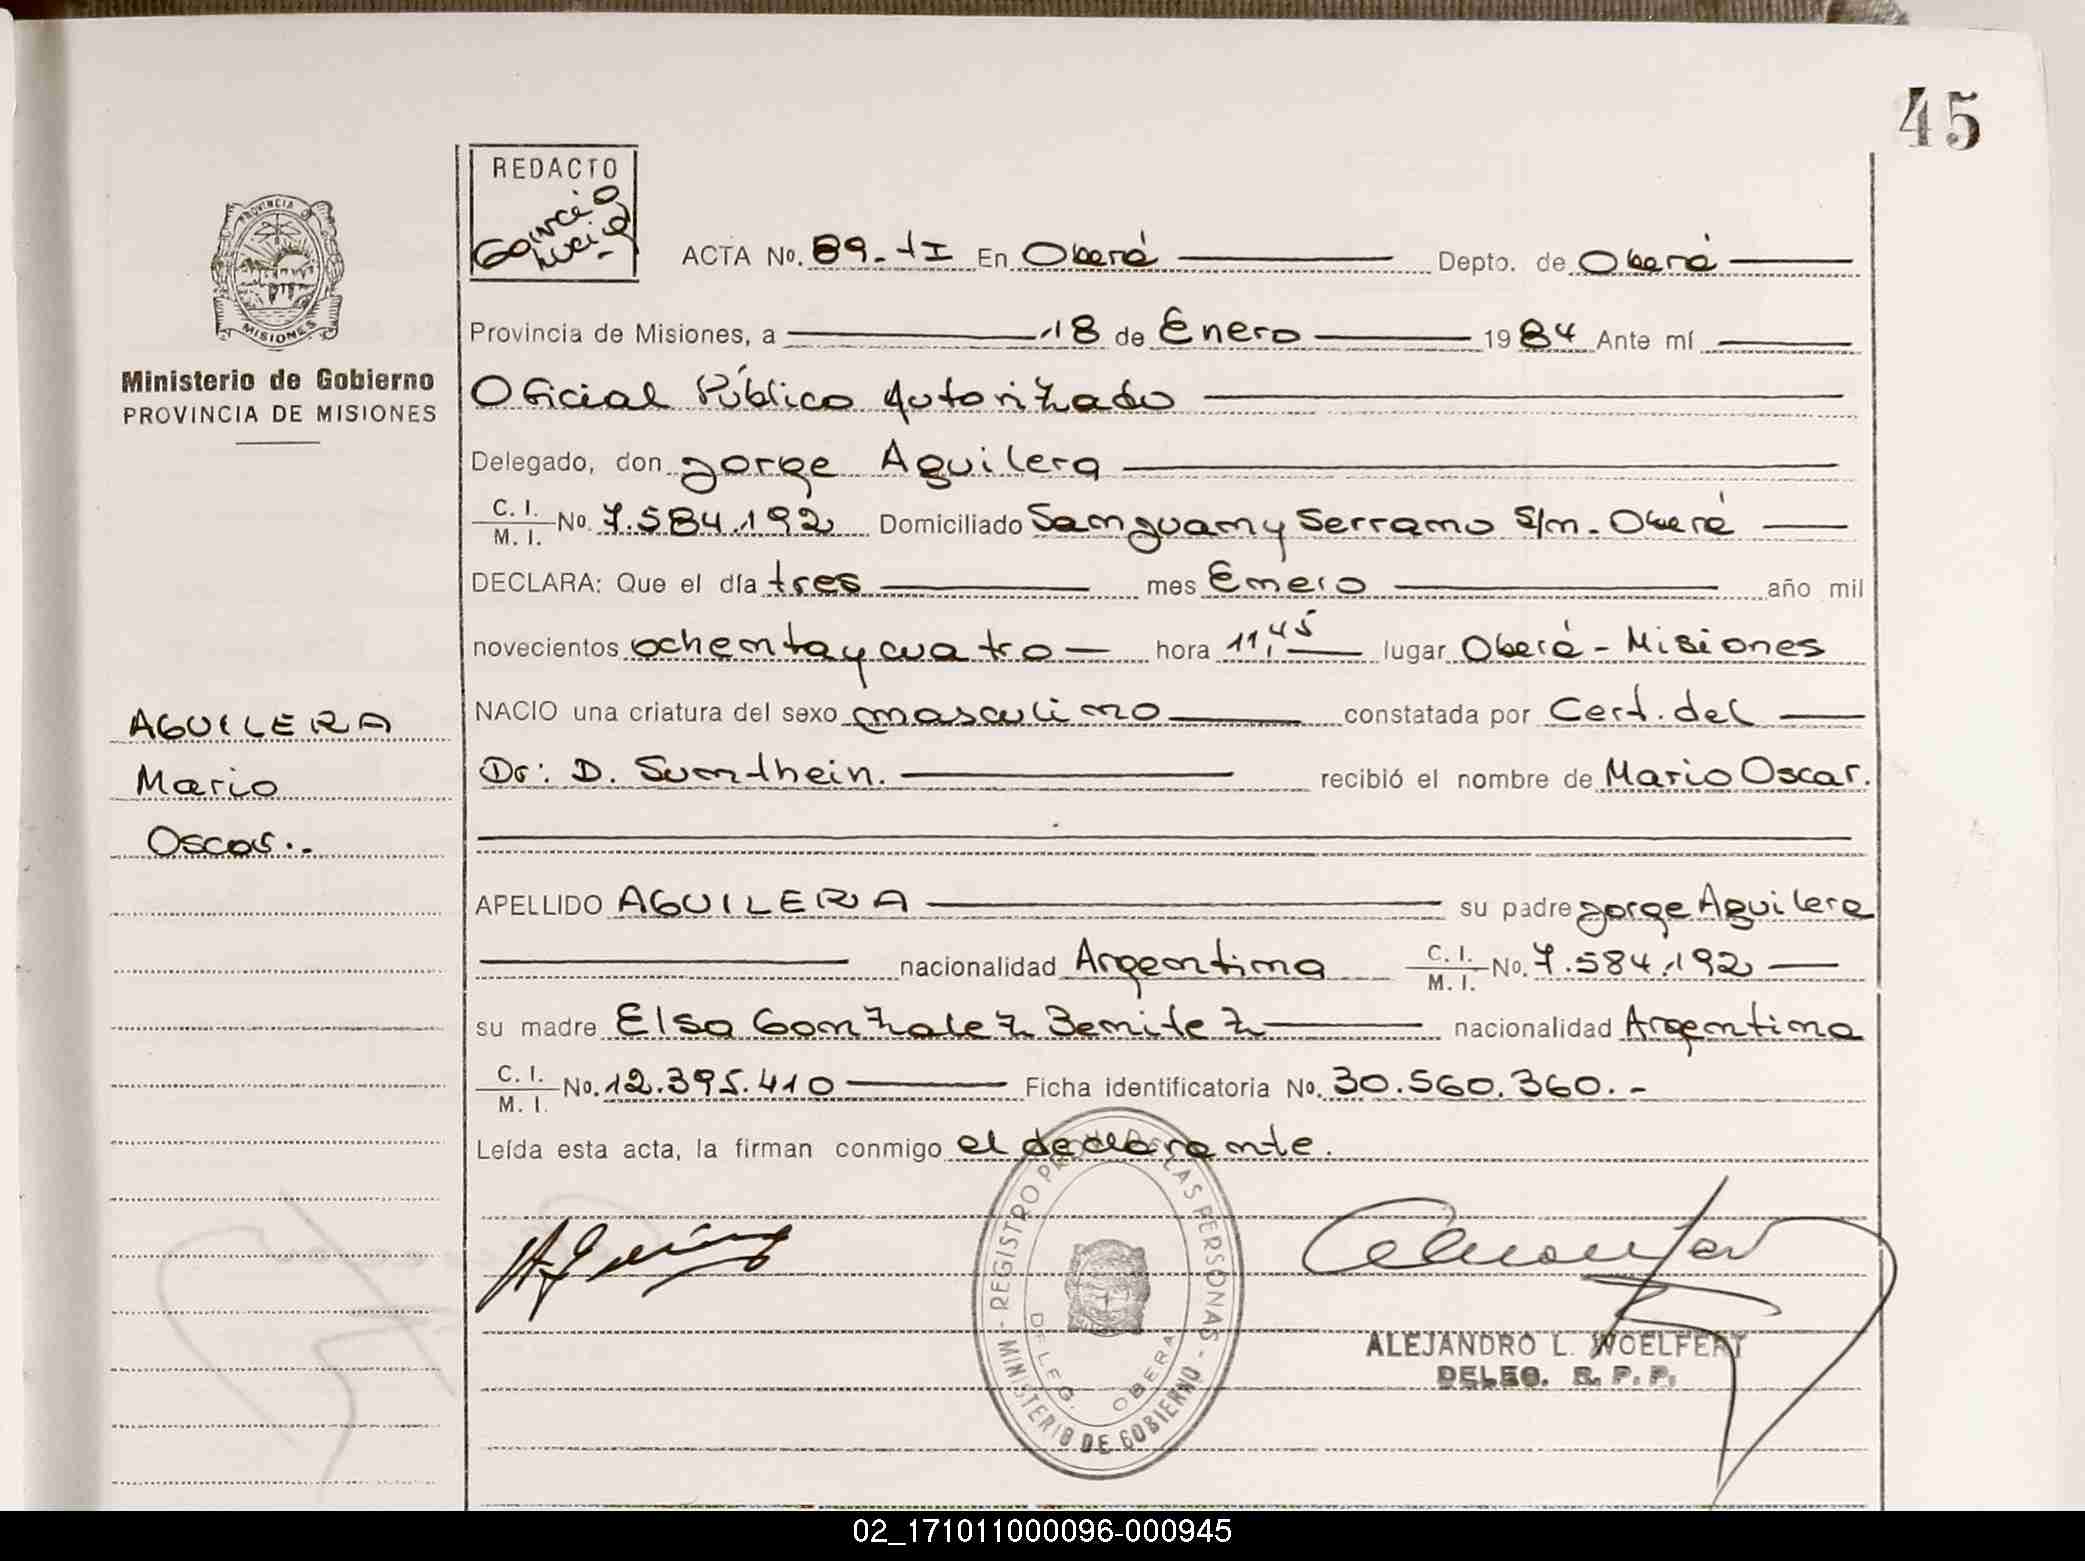 45
REDACTO
García
Lucia
PROVINCIA DE
MISIONES
Ministerio de Gobierno
PROVINCIA DE MISIONES
ACTA No. 89-tI En Oberá Depto. de Oberá
Provincia de Misiones, a 18 de Enero 1984 Ante mí
Oficial Público Autorizado
Delegado, don Jorge Aguilera
C. I. / M. I. No. 7.584.192 Domiciliado Sanjuan y Serrano S/n. Oberá
DECLARA: Que el día tres mes Enero año mil
novecientos ochenta y cuatro hora 11,45 lugar Oberá - Misiones
NACIO una criatura del sexo masculino constatada por Cert. del
Dr: D. Sunthein. recibió el nombre de Mario Oscar.
AGUILERA
Mario
Oscar.-
APELLIDO AGUILERA su padre Jorge Aguilera
nacionalidad Argentina C. I. / M. I. No. 7.584.192
su madre Elsa Gonzalez Benitez nacionalidad Argentina
C. I. / M. I. No. 12.395.410 Ficha identificatoria No. 30.560.360.-
Leída esta acta, la firman conmigo el declarante.
REGISTRO PROV. DE LAS PERSONAS - MINISTERIO DE GOBIERNO -
DELEG. OBERA
ALEJANDRO L. WOELFERT
DELEG. R. P. P.
02_171011000096-000945